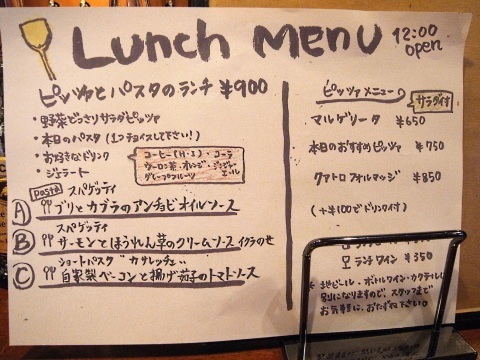 Lunch MENU
12:00
open
ピッツァとパスタのランチ ¥900
・野菜どっさりサラダピッツァ
・本日のパスタ (1つチョイスして下さい!)
・お好きなドリンク
・ジェラート
コーヒー(H・I)・コーラ
ウーロン茶・オレンジ・ジンジャーエール
グレープフルーツ
pasta スパゲッティ
A ブリとカブラのアンチョビオイルソース
スパゲッティ
B サーモンとほうれん草のクリームソース イクラのせ
ショートパスタ"カサレッチェ"
C 自家製ベーコンと揚げ茄子のトマトソース
ピッツァメニュー
サラダ付
マルゲリータ ¥650
本日のおすすめピッツァ ¥750
クァトロフォルマッジ ¥850
(+¥100でドリンク付)
ランチワイン ¥350
*地ビール・ボトルワイン・カクテルは
別になりますので、スタッフまで
お気軽に、おたずね下さい。